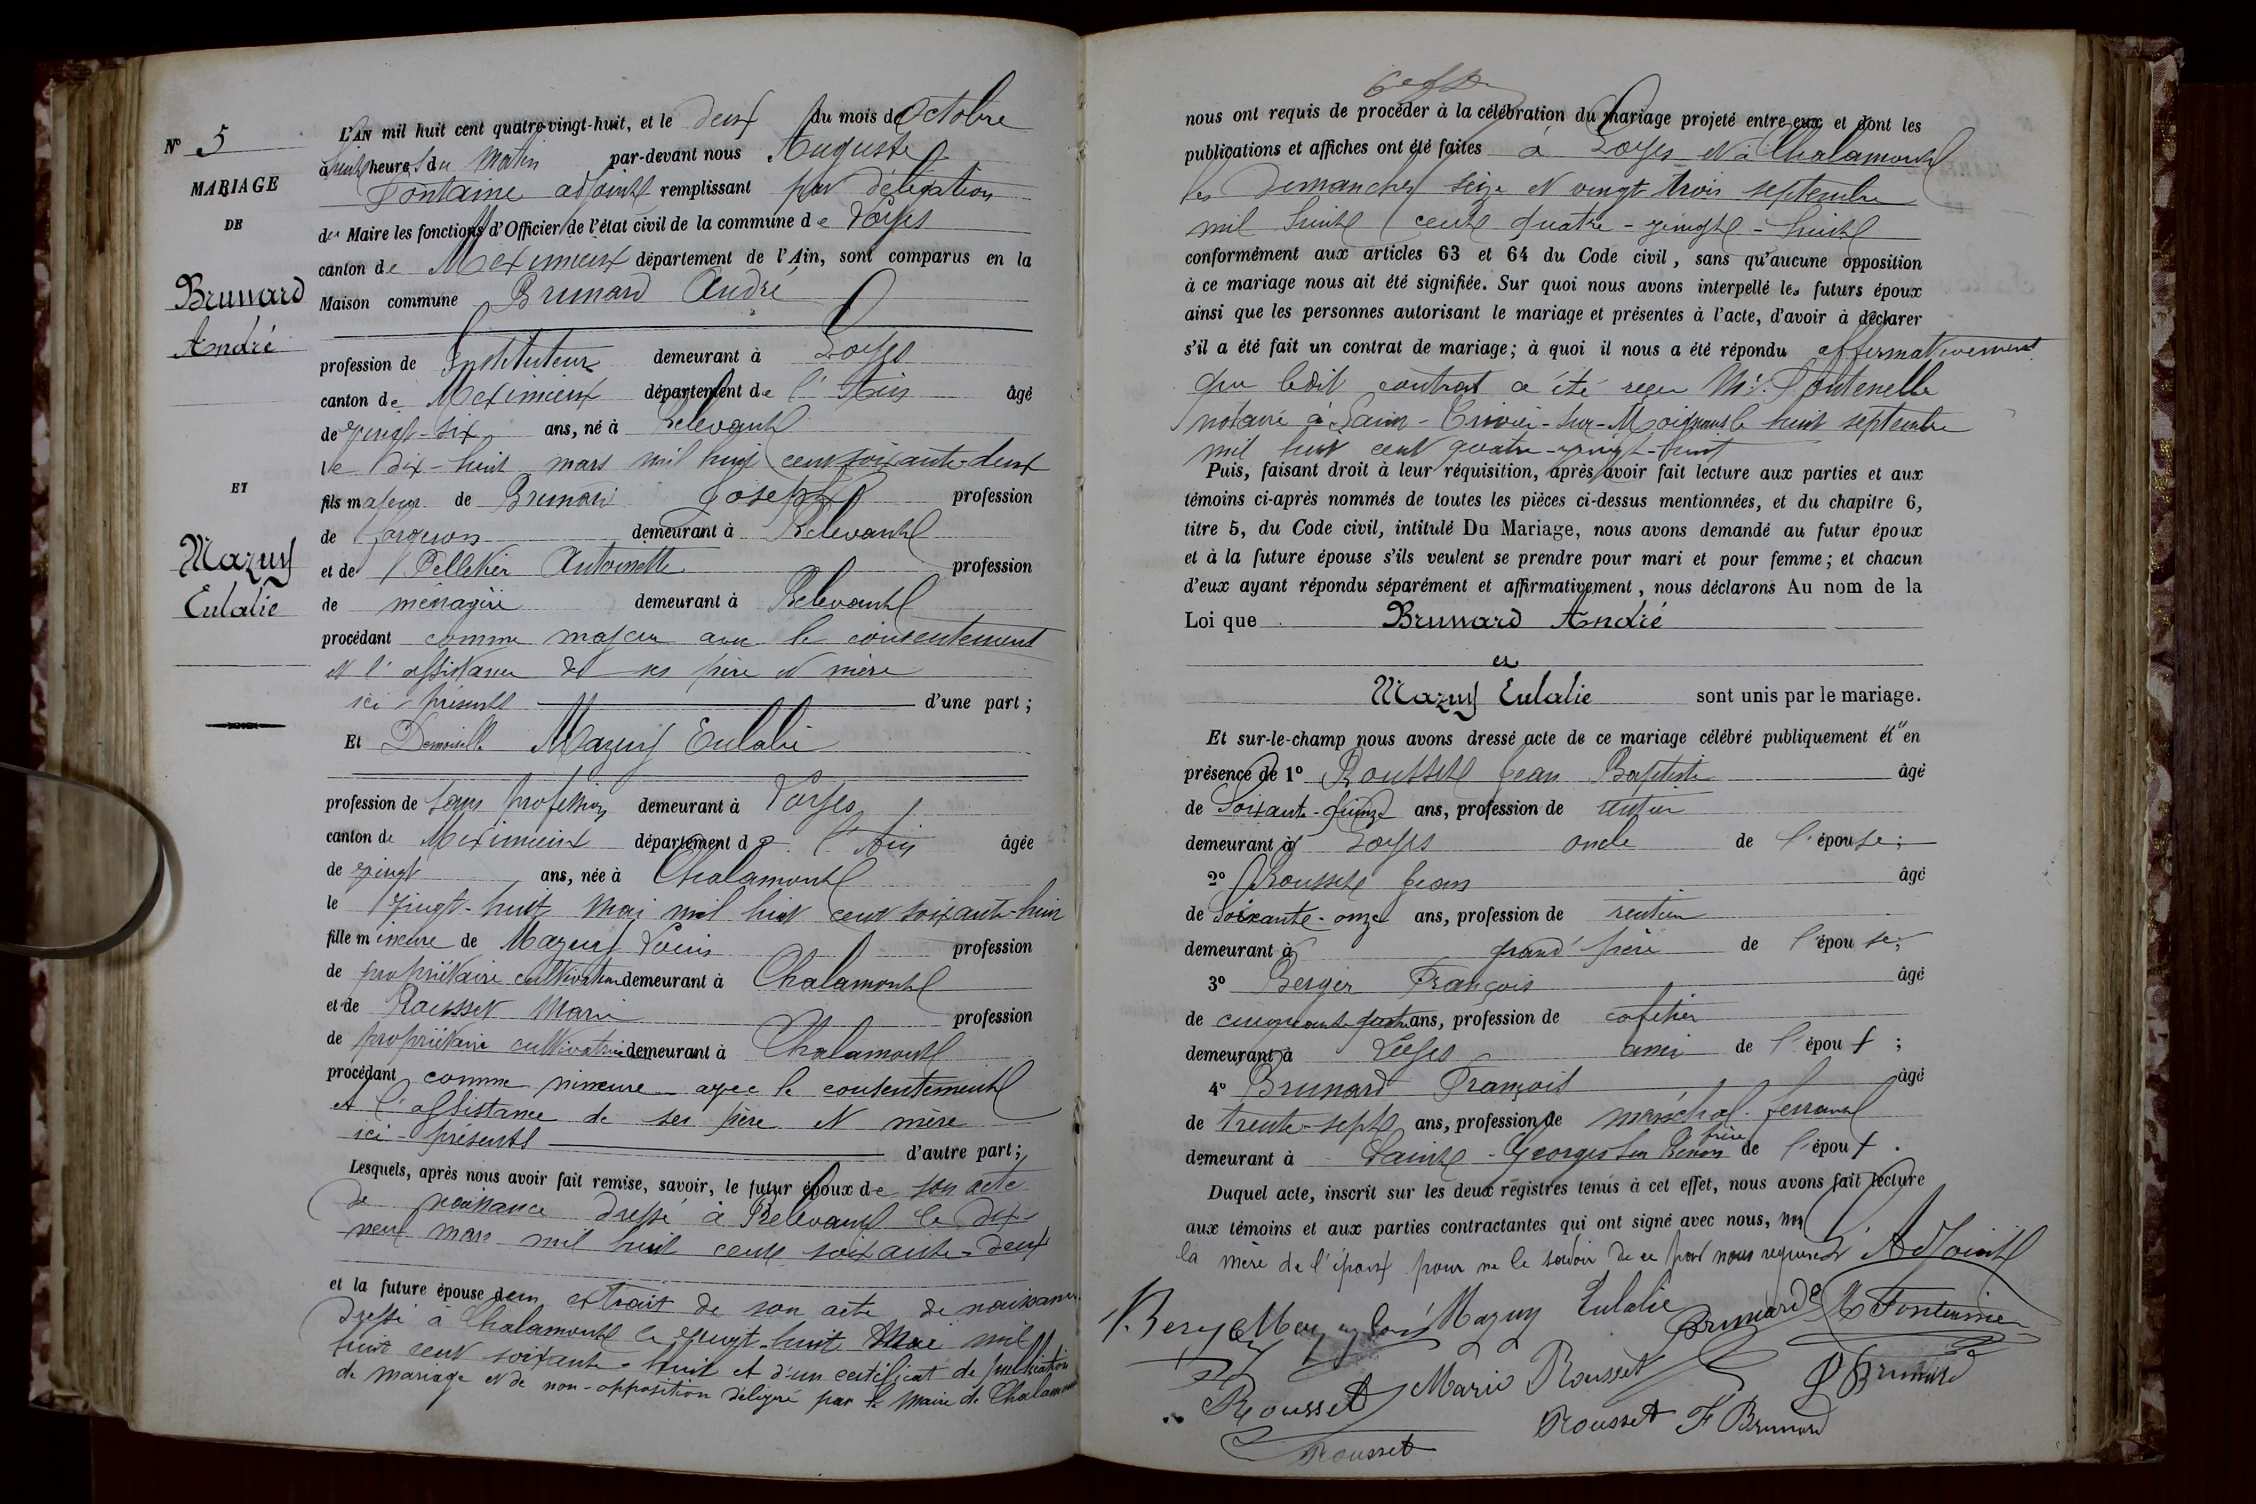 N° 5
MARIAGE
DE
Brunard
André
ET
Mazuy
Eulalie
L'AN mil huit cent quatre-vingt-huit, et le deux du mois d'Octobre
à huit heures du matin par-devant nous Auguste
Fontaine adjoint remplissant par délégation
du Maire les fonctions d'Officier de l'état civil de la commune de Loyes
canton de Meximieux département de l'Ain, sont comparus en la
Maison commune Brunard André
profession de Instituteur demeurant à Loyes
canton de Meximieux département de l'Ain âgé
de vingt-six ans, né à Relevant
le dix-huit mars mil huit cent soixante-deux
fils majeur de Brunard Joseph profession
de forgeron demeurant à Relevant
et de Pelletier Antoinette profession
de ménagère demeurant à Relevant
procédant comme majeur avec le consentement
et l'assistance de ses père et mère
ici présents d'une part ;
Et Demoiselle Mazuy Eulalie
profession de sans profession demeurant à Loyes
canton de Meximieux département de l'Ain âgée
de vingt ans, née à Chalamont
le vingt-huit mai mil huit cent soixante-huit
fille mineure de Mazuy Louis profession
de propriétaire cultivateur demeurant à Chalamont
et de Rousset Marie profession
de propriétaire cultivatrice demeurant à Chalamont
procédant comme mineure avec le consentement
et l'assistance de ses père et mère
ici-présents d'autre part ;
Lesquels, après nous avoir fait remise, savoir, le futur époux de son acte
de naissance dressé à Relevant le dix-
neuf mars mil huit cent soixante-deux
et la future épouse d'un extrait de son acte de naissance
dressé à Chalamont le vingt-huit Mai mil
huit cent soixante-huit et d'un certificat de publication
de mariage et de non-opposition délivré par le maire de Chalamont
nous ont requis de procéder à la célébration du mariage projeté entre eux et dont les
publications et affiches ont été faites à Loyes et à Chalamont
les dimanches seize et vingt-trois septembre
mil huit cent quatre-vingt-huit
conformément aux articles 63 et 64 du Code civil, sans qu'aucune opposition
à ce mariage nous ait été signifiée. Sur quoi nous avons interpellé les futurs époux
ainsi que les personnes autorisant le mariage et présentes à l'acte, d'avoir à déclarer
s'il a été fait un contrat de mariage ; à quoi il nous a été répondu affirmativement
que ledit contrat a été reçu Me Fontenelle
notaire à Saint-Trivier-sur-Moignans le huit septembre
mil huit cent quatre-vingt-huit
Puis, faisant droit à leur réquisition, après avoir fait lecture aux parties et aux
témoins ci-après nommés de toutes les pièces ci-dessus mentionnées, et du chapitre 6,
titre 5, du Code civil, intitulé Du Mariage, nous avons demandé au futur époux
et à la future épouse s'ils veulent se prendre pour mari et pour femme ; et chacun
d'eux ayant répondu séparément et affirmativement, nous déclarons Au nom de la
Loi que Brunard André
et
Mazuy Eulalie sont unis par le mariage.
Et sur-le-champ nous avons dressé acte de ce mariage célébré publiquement et en
présence de 1° Rousset Jean Baptiste âgé
de soixante-quinze ans, profession de rentier
demeurant à Loyes oncle de l'épouse ;
2° Rousset Jean âgé
de soixante-onze ans, profession de rentier
demeurant à grand'père de l'épouse ;
3° Berger François âgé
de cinquante-quatre ans, profession de cafetier
demeurant à Loyes ami de l'époux ;
4° Brunard François âgé
de trente-sept ans, profession de maréchal-ferrant
demeurant à Saint-Georges sur Renon frère de l'époux.
Duquel acte, inscrit sur les deux registres tenus à cet effet, nous avons fait lecture
aux témoins et aux parties contractantes qui ont signé avec nous,
la mère de l'époux pour ne le savoir de ce par nous requise
L'Adjoint
Mazuy Eulalie
Brunard
Fontaine
Rousset
Marie Rousset
Brunard
Rousset
Rousset F Brunard